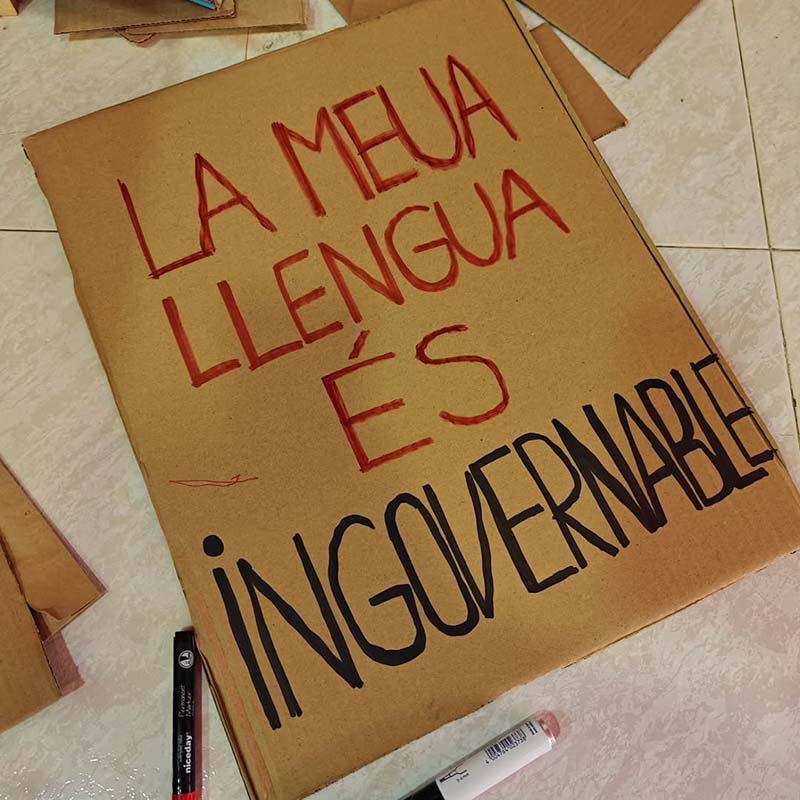 LA MEUA
LLENGUA
ÉS
iNGOVERNABLE
Permanent
Marker
niceday